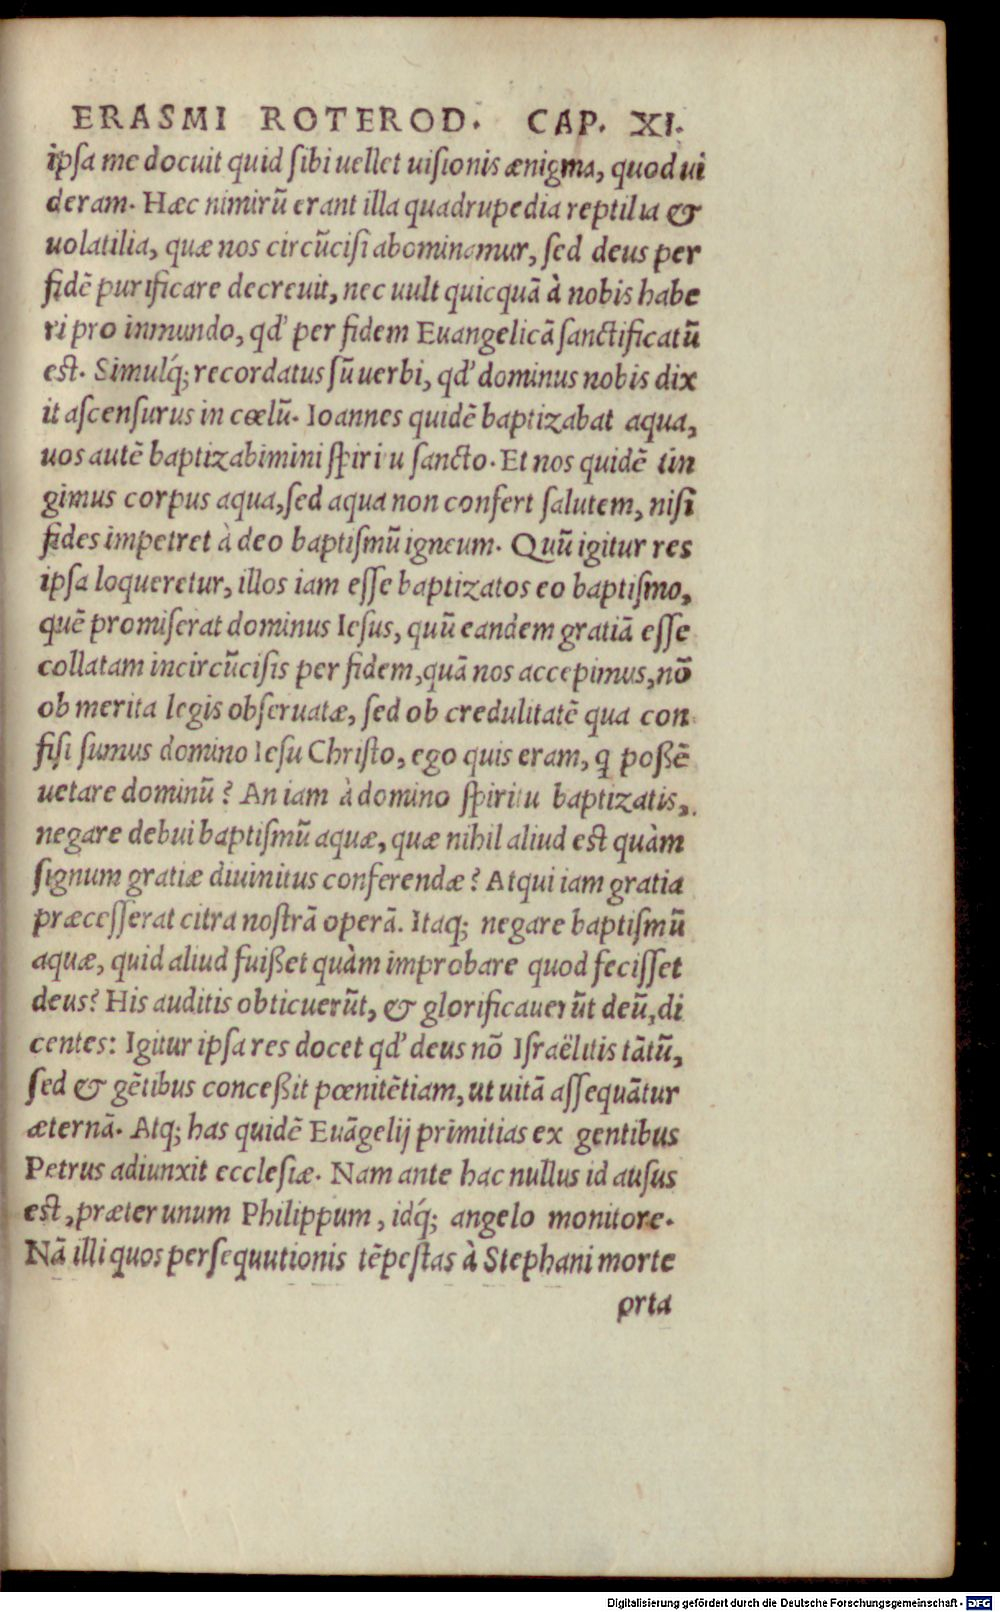 ERASMI ROTEROD. CAP. XI.
ipsa me docuit quid sibi uellet uisionis ænigma, quod ui
deram. Hæc nimirũ erant illa quadrupedia reptilia &
uolatilia, quæ nos circũcisi abominamur, sed deus per
fidẽ purificare decreuit, nec uult quicquã à nobis habe
ri pro inmundo, qđ per fidem Euangelicã sanctificatũ
est. Simulq́; recordatus sũ uerbi, qđ dominus nobis dix
it ascensurus in cœlũ. Ioannes quidẽ baptizabat aqua,
uos autẽ baptizabimini spiri u sancto. Et nos quidẽ tin
gimus corpus aqua, sed aqua non confert salutem, nisi
fides impetret à deo baptismũ igneum. Quũ igitur res
ipsa loqueretur, illos iam esse baptizatos eo baptismo,
quẽ promiserat dominus Iesus, quũ eandem gratiã esse
collatam incircũcisis per fidem, quã nos accepimus, nõ
ob merita legis obseruatæ, sed ob credulitatẽ qua con
fisi sumus domino Iesu Christo, ego quis eram, q possẽ
uetare dominũ? An iam à domino spiritu baptizatis,
negare debui baptismũ aquæ, quæ nihil aliud est quàm
signum gratiæ diuinitus conferendæ? Atqui iam gratia
præcesserat citra nostrã operã. Itaq; negare baptismũ
aquæ, quid aliud fuißet quàm improbare quod fecisset
deus? His auditis obticuerũt, & glorificauerũt deũ, di
centes: Igitur ipsa res docet qđ deus nõ Israëlitis tãtũ,
sed & gẽtibus conceßit pœnitẽtiam, ut uitã assequãtur
æternã. Atq; has quidẽ Euãgelij primitias ex gentibus
Petrus adiunxit ecclesiæ. Nam ante hac nullus id ausus
est, præter unum Philippum, idq́; angelo monitore.
Nã illi quos persequutionis tẽpestas à Stephani morte
orta
Digitalisierung gefördert durch die Deutsche Forschungsgemeinschaft - DFG